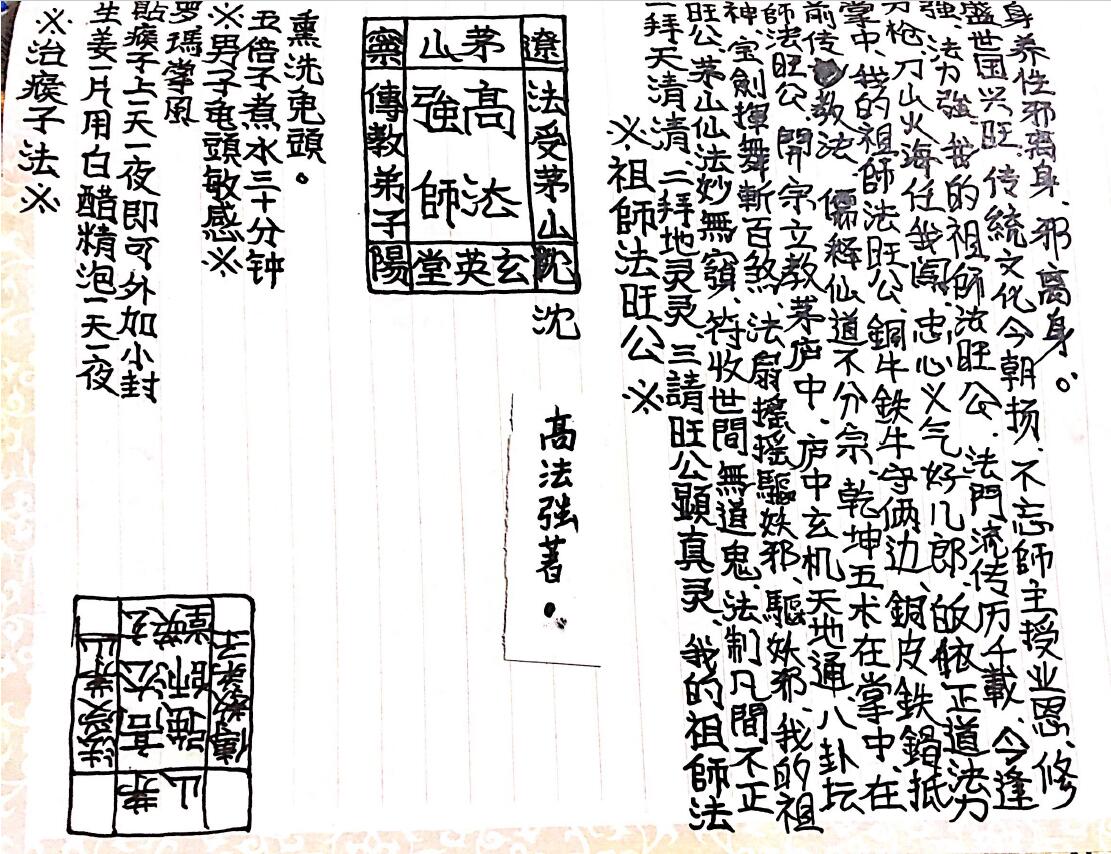 ※治瘊子法※
生姜一片用白醋精泡一天一夜
貼瘊子上一天一夜即可外加小封
罗瑪掌風
※男子龟頭敏感※
五倍子煮水三十分钟
熏洗龟頭。
遼茅山寧
法受茅山沈
高法
強師
傳教弟子
玄英堂陽
沈
高法強著。
茅山
法受茅山
高法
強師
傳教弟子
玄英堂
※祖師法旺公※
一拜天清清 二拜地灵灵 三請旺公顯真灵、我的祖師法
旺公、茅山仙法妙無窮、符收世間無道鬼、法制凡間不正
神、宝劍揮舞斬百煞、法扇摇摇驅妖邪、驅妖邪、我的祖
師法旺公、開宗立教茅庐中、庐中玄机天地通八卦坛
前传教法、儒释仙道不分宗、乾坤五术在掌中、在
掌中、我的祖師法旺公、銅牛鉄牛守俩边、銅皮鉄抵
刀枪、刀山火海任我闯、忠心义气好儿郎、的依正道法力
强、法力強、我的祖師法旺公、法門流传历千載、今逢
盛世国兴旺、传統文化今朝扬、不忘師主授业恩、修
身养性邪离身、邪离身。